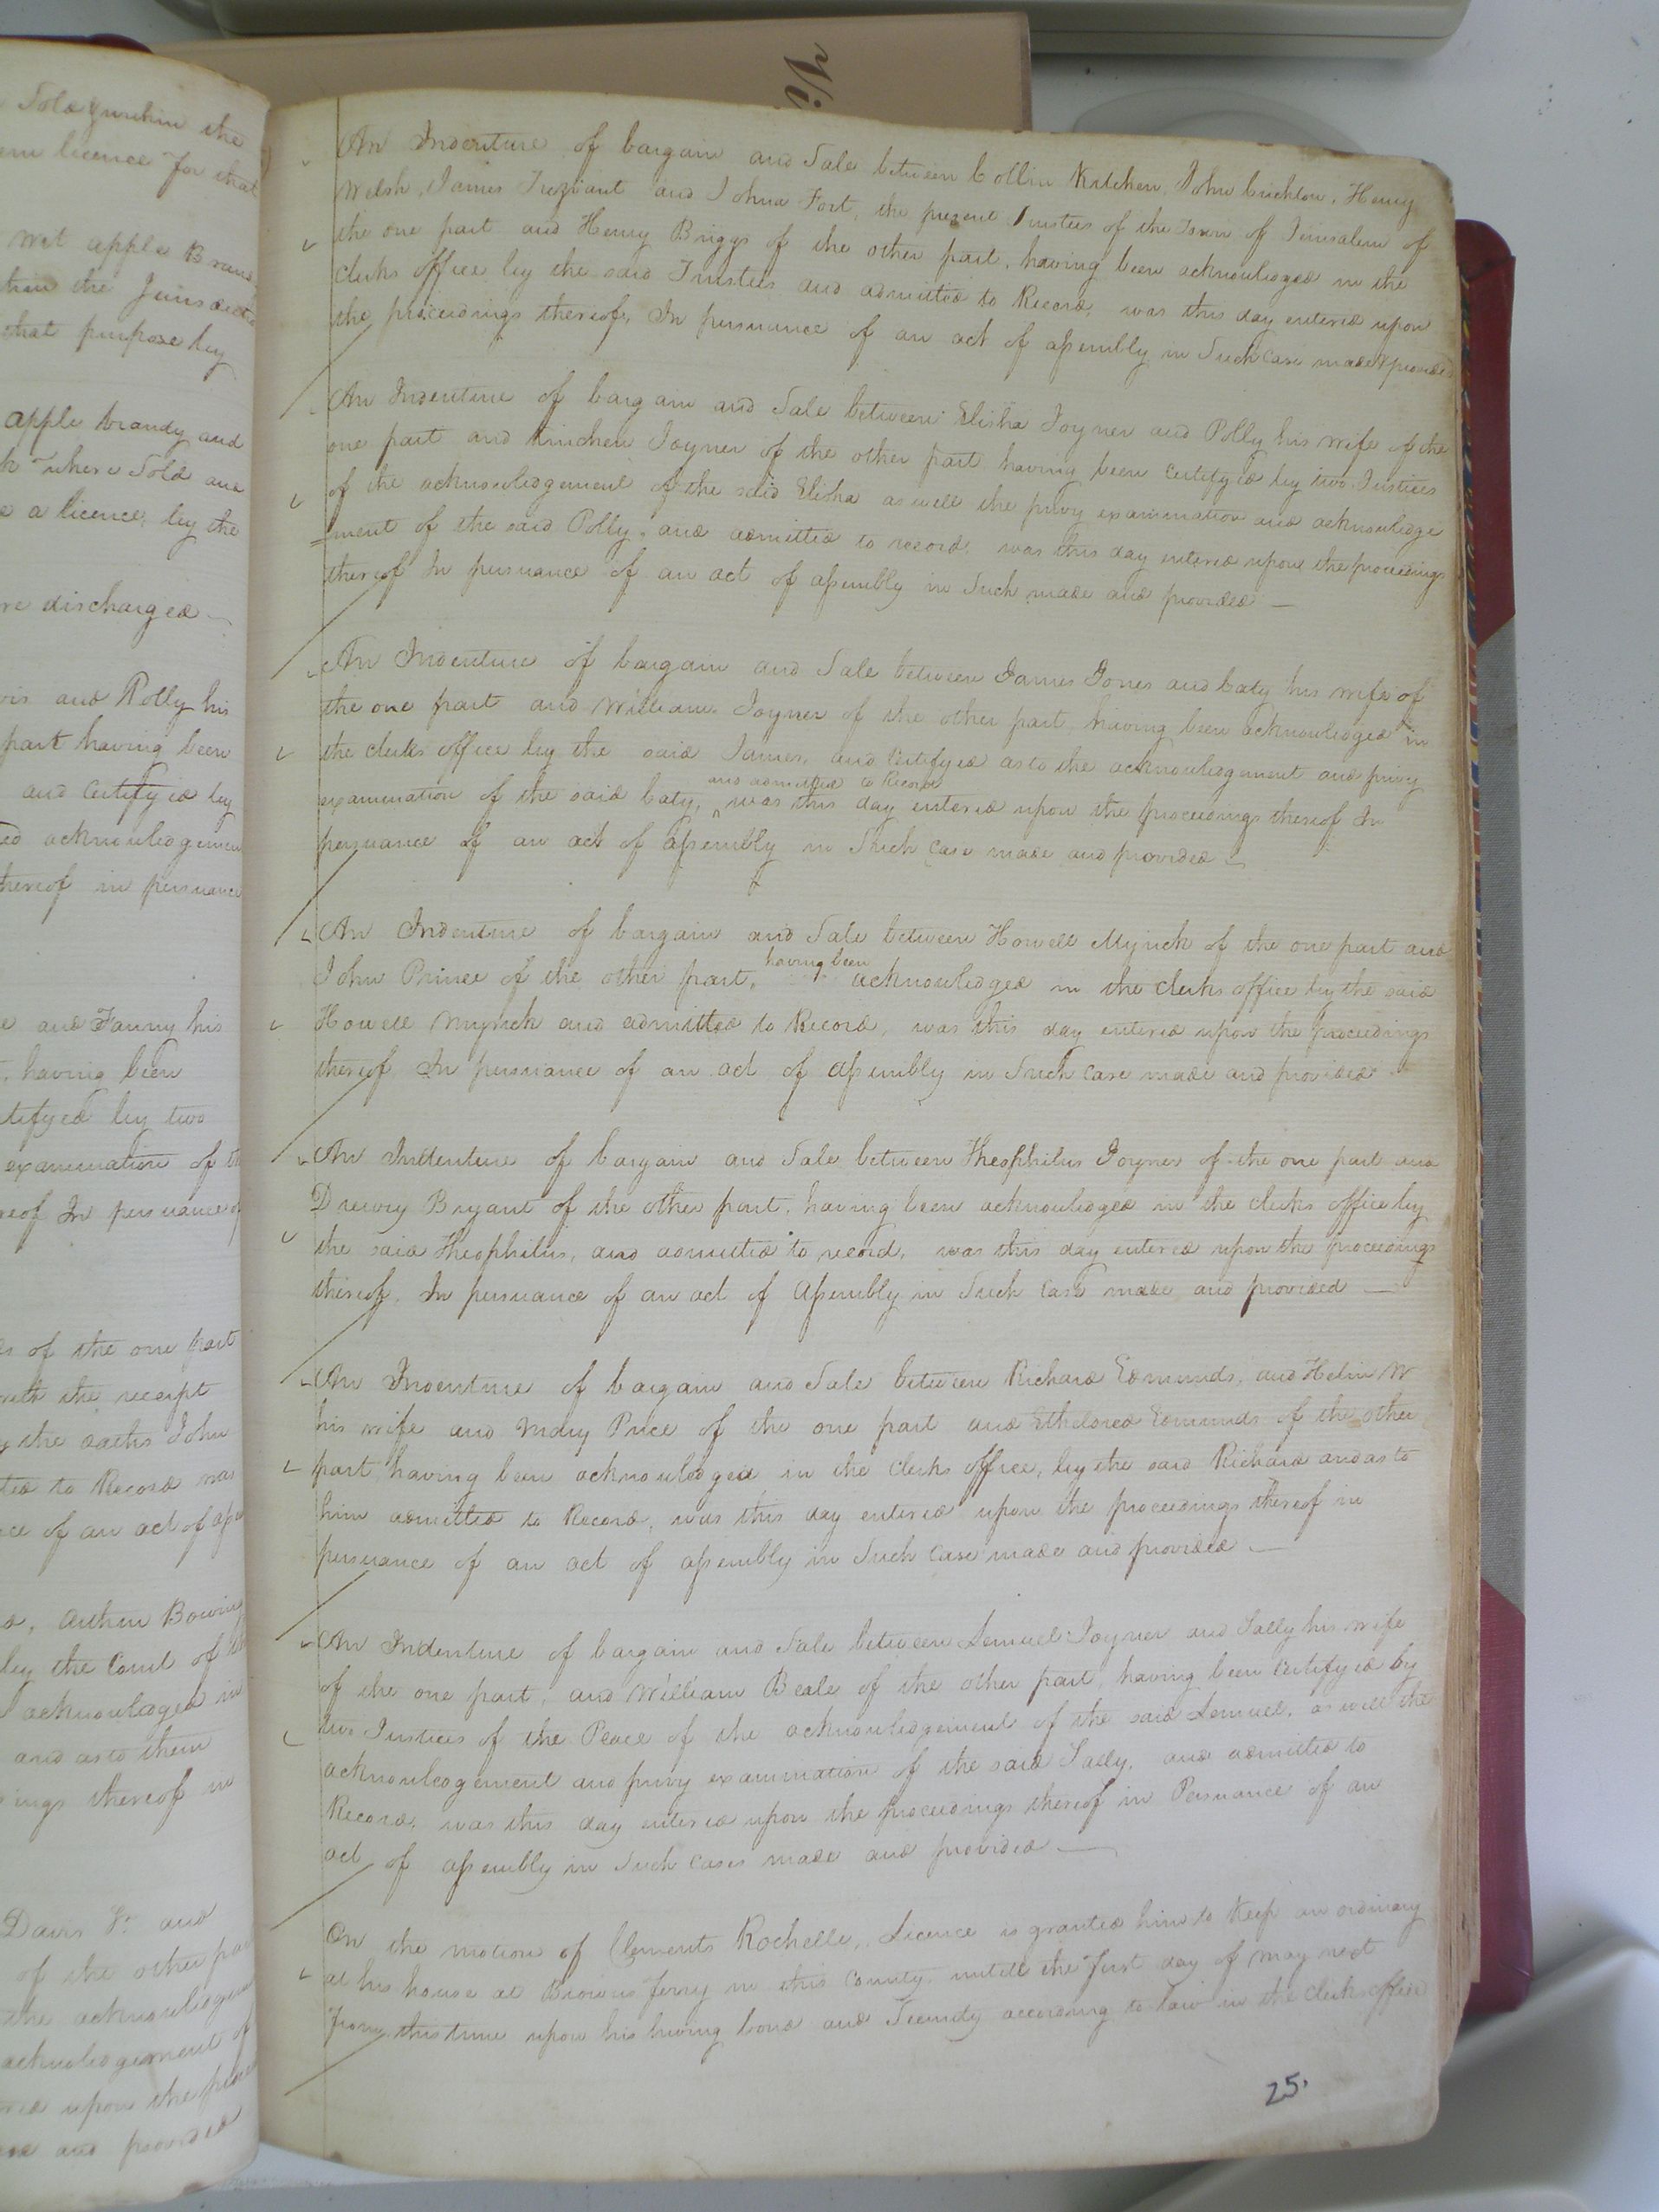 Sold within the
licence for that
wet apple Bran
the Jurisdicti
that purpose by
apple brandy and
where Sold and
a licence, by the
re discharged
and Polly his
part having been
and Certifyed by
acknowledgemen
hereof in persuance
and Fanny his
, having been
tifyed by two
examination of th
eof In persuance of
of the one part
the receipt
the oaths John
ted to Record was
ce of an act of
Bowin
by the Court of
acknowledged in
and as to them
ings thereof in
Davis Jr. and
of the other par
the acknowledgem
acknowledgement of
upon the
and provided
An Indenture of bargain and Sale between Collin Kitchen, John Crichlow, Henry
Welsh, James Trezvant and Johua Fort, the present Trustees of the Town of Jerusalem of
the one part and Henry Briggs of the other part, having been acknowledged in the
Clerks office by the said Trustees and admitted to Record, was this day entered upon
the proceedings thereof, In persuance of an act of assembly in Such case made & provided
An Indenture of bargain and Sale between Elisha Joyner and Polly his wife of the
one part and Kinchen Joyner of the other part having been certifyed by two Justices
of the acknowledgement of the said Elisha as well the privy examination and acknowledge
=ment of the said Polly, and admitted to record, was this day entered upon the proceedings
thereof In persuance of an act of assembly in Such made and provided —
An Indenture of bargain and Sale between James Jones and Caty his wife of
the one part and William Joyner of the other part having been acknowledged in
the clerks office by the said James, and Certifyed as to the acknowledgment and privy
and admitted to Record
examination of the said Caty, ^ was this day entered upon the proceedings thereof In
persuance of an act of assembly in Such case made and provided —
An Indenture of bargain and Sale between Howell Myrick of the one part and
having been
John Prince of the other part, acknowledged in the clerks office by the said
Howell Myrick and admitted to Record, was this day entered upon the proceedings
thereof, In persuance of an act of assembly in Such case made and provided
An Indenture of bargain and Sale between Theophilus Joyner of the one part and
Drewry Bryant of the other part, having been acknowledged in the clerks office by
the said Theophilus, and admitted to record, was this day entered upon the proceedings
thereof, In persuance of an act of Assembly in Such Case made and provided —
An Indenture of bargain and Sale between Richard Edmunds, and Helin W
his wife and Mary Price of the one part and Etheldred Edmunds of the other
part having been acknowledged in the Clerks office, by the said Richard and as to
him admitted to Record, was this day entered upon the proceedings thereof in
persuance of an act of assembly in Such case made and provided —
An Indenture of bargain and Sale between Lemuel Joyner and Sally his wife
of the one part, and William Beale of the other part, having been Certifyed by
two Justices of the Peace of the acknowledgement of the said Lemuel, as well the
acknowledgement and privy examination of the said Sally, and admitted to
Record, was this day entered upon the proceedings thereof in Persuance of an
act of assembly in Such cases made and provided —
On the motion of Clements Rochelle, Licence is granted him to keep an ordinary
at his house at Browns ferry in this County untill the first day of May next
from this time upon his giving bond and Security according to law in the clerks office
25.